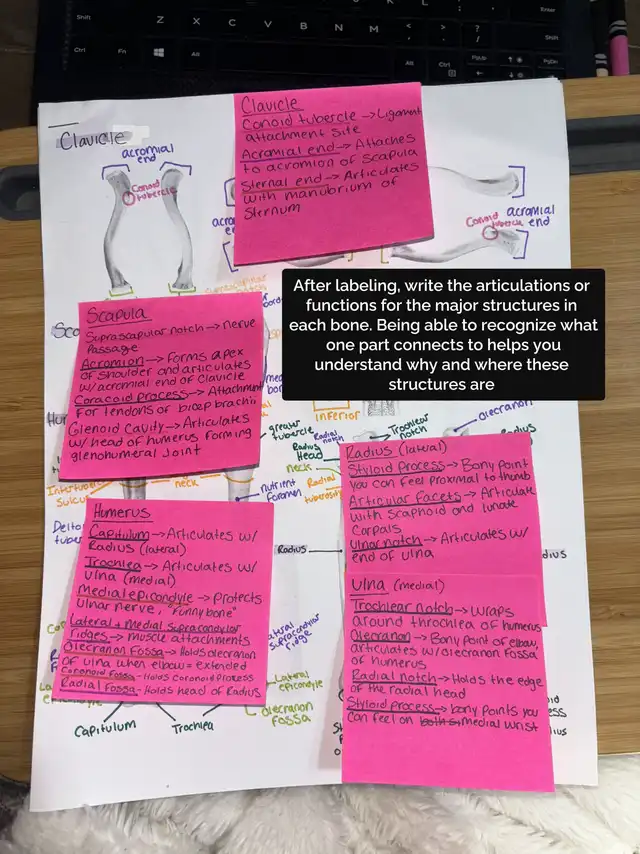 Shift
Z
X
C
V
B
N
M
Shift
Enter
Ctrl
Fn
Alt
Alt
Ctrl
PgUp
PgDn
Clavicle
acromial
end
Conoid
tubercle
Clavicle
Conoid tubercle → Ligament
attachment site
Acromial end → Attaches
to acromion of scapula
Sternal end → Articulates
with manubrium of
sternum
Conoid
tubercle
acromial
end
After labeling, write the articulations or
functions for the major structures in
each bone. Being able to recognize what
one part connects to helps you
understand why and where these
structures are
Scapula
Suprascapular notch → nerve
passage
Acromion → Forms apex
of shoulder and articulates
w/ acromial end of Clavicle
Coracoid Process → Attachment
for tendons of bicep brachii
Glenoid Cavity → Articulates
w/ head of humerus forming
glenohumeral joint
inferior
greater
tubercle
neck
nutrient
foramen
Trochlear
notch
Olecranon
Radial
notch
Radius
Head
neck
Radial
tuberosity
Radius
Humerus
Capitulum → Articulates w/
Radius (lateral)
Trochlea → Articulates w/
Ulna (medial)
Medial epicondyle → Protects
ulnar nerve, "funny bone"
Lateral + Medial Supracondylar
ridges → muscle attachments
Olecranon Fossa → Holds olecranon
of ulna when elbow = extended
Coronoid Fossa - Holds Coronoid Process
Radial Fossa - Holds head of Radius
Radius (lateral)
Styloid Process → Bony point
you can feel proximal to thumb
Articular Facets → Articulate
with scaphoid and lunate
carpals
Ulnar notch → Articulates w/
end of ulna
Ulna (medial)
Trochlear notch → wraps
around throchlea of humerus
Olecranon → Bony point of elbow,
articulates w/ olecranon fossa
of humerus
Radial notch → Holds the edge
of the radial head
Styloid process → bony points you
can feel on medial wrist
supracondylar
ridge
Lateral
epicondyle
Olecranon
Fossa
Capitulum
Trochlea